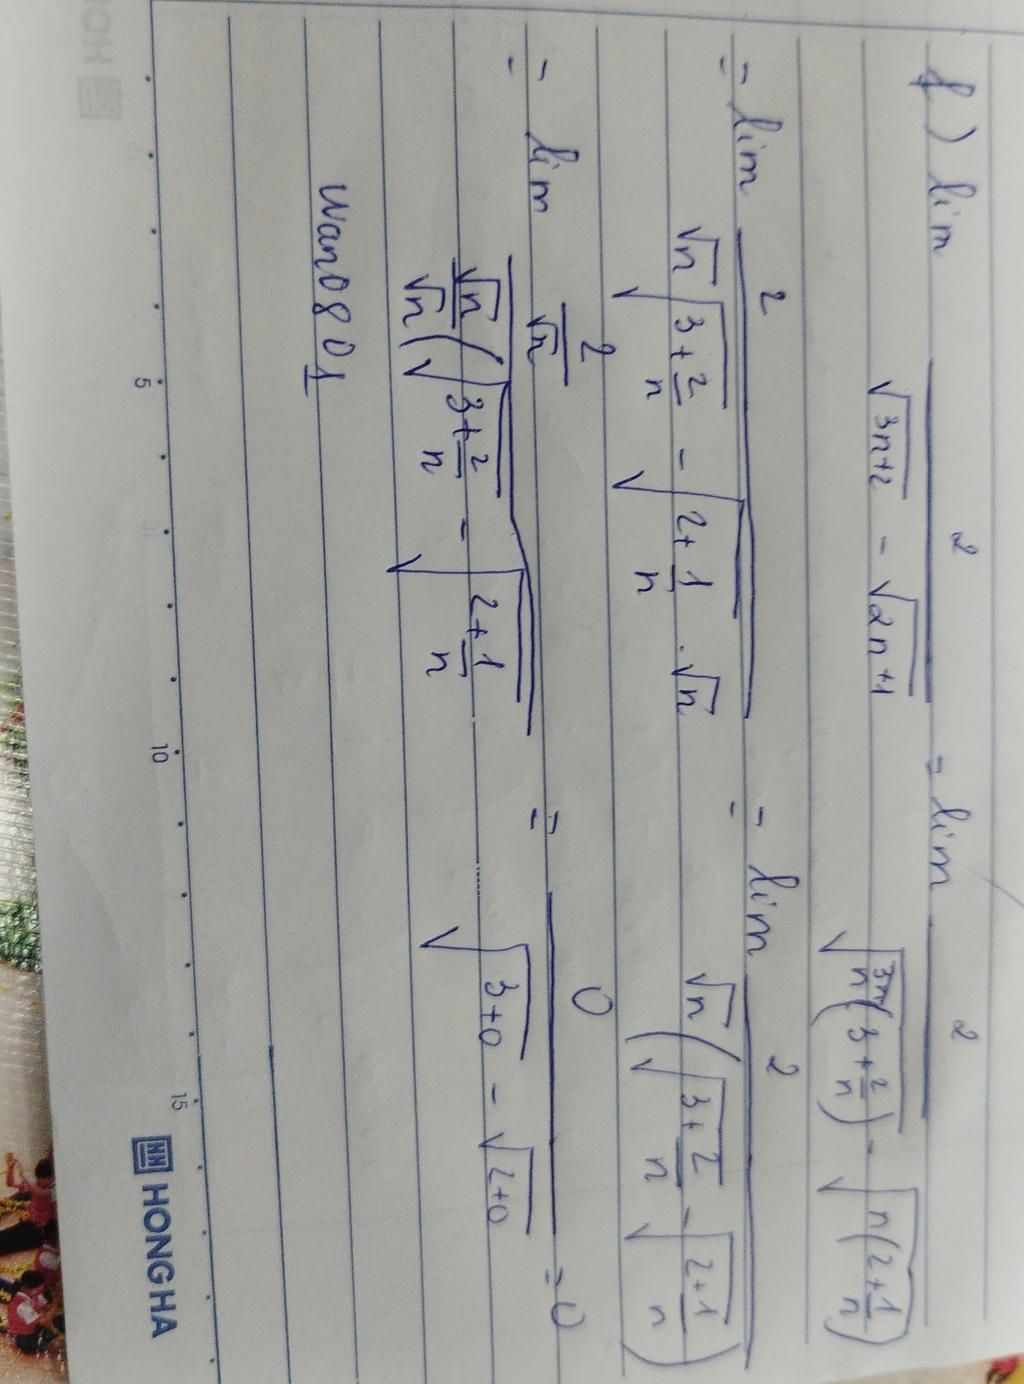 f) lim 2 / (√(3n+2) - √(2n+1)) = lim 2 / (√(n(3+2/n)) - √(n(2+1/n)))
= lim 2 / (√n √(3+2/n) - √(2+1/n) . √n) = lim 2 / (√n (√(3+2/n) - √(2+1/n)))
= lim (2/√n) / ((√n/√n) (√(3+2/n) - √(2+1/n))) = 0 / (√(3+0) - √(2+0)) = 0
Wan0801
5 10 15
HONG HA